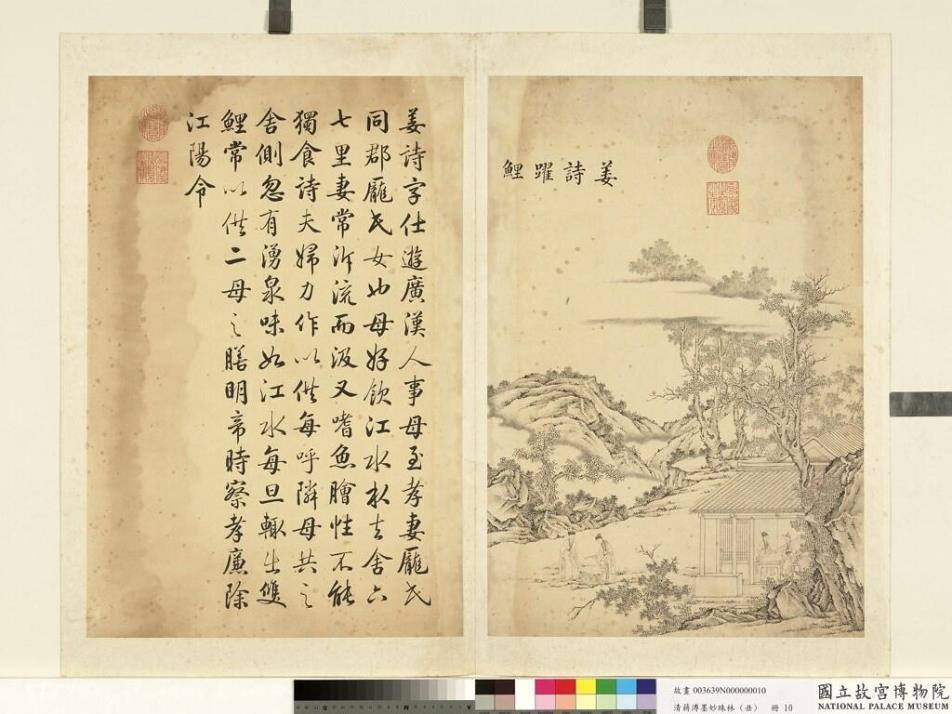 姜詩躍鯉
姜詩字仕遊廣漢人事母至孝妻龐氏
同郡龐氏女也母好飲江水水去舍六
七里妻常泝流而汲又嗜魚膾性不能
獨食詩夫婦力作以供每呼隣母共之
舍側忽有湧泉味如江水每旦輒出雙
鯉常以供二母之膳明帝時察孝廉除
江陽令
故畫 003639N000000010
清蔣溥墨妙珠林(丑) 冊 10
國立故宮博物院
NATIONAL PALACE MUSEUM